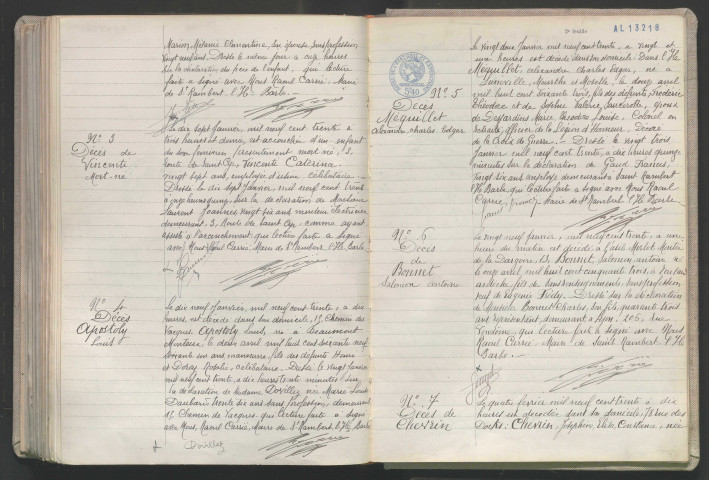 Marion, Mélanie Clémentine, son épouse, sans profession
vingt neuf ans. Dressé le même jour à onze heures
sur la déclaration du père de l'enfant, qui lecture
faite a signé avec Nous Raoul Carrié, Maire
de St Rambert l'Ile Barbe.
N° 3
Décès de
Vinconte
Mort-né
Le dix sept Janvier, mil neuf cent trente à
trois heures et demie, est accouchée d'un enfant
du sexe féminin présentement mort-né, 3
Route de Saint Cyr, Vinconte Caterina
vingt sept ans, employée d'usine célibataire.
Dressé le dix sept Janvier, mil neuf cent trente
à onze heures, sur la déclaration de Madame
Laurent Jeannès vingt six ans
demeurant 3, Route de Saint Cyr, comme ayant
assisté à l'accouchement qui lecture faite a signé
avec Nous Raoul Carrié, Maire de St Rambert l'Ile Barbe
N° 4
Décès
Apostoly
Louis
Le dix neuf Janvier, mil neuf cent trente, à dix
heures, est décédé dans son domicile, 15 Chemin de
Vacques Apostoly Louis, né à Beaumont
Monteux, le deux avril mil huit cent soixante neuf
soixante un ans manœuvre, fils des défunts Henri
et Deras Rosalie, célibataire. Dressé le vingt Janvier
mil neuf cent trente, à dix heures trente minutes sur
la déclaration de Madame Dovillez née Marie Louise
Daubarès trente six ans sans profession, demeurant
15 Chemin de Vacques, qui lecture faite a signé
avec Nous, Raoul Carrié, Maire de St Rambert l'Ile Barbe
Dovillez
AL 13218
540
N° 5
Décès
Méquillet
Alexandre, Charles, Edgar
Le vingt deux Janvier mil neuf cent trente, à vingt et
une heures est décédé dans son domicile
Méquillet, Alexandre Charles Edgar, né à
Lunéville, Meurthe et Moselle, le douze avril
mil huit cent soixante trois, fils des défunts, Frédéric
Théodore et de Sophie Valérie, époux
de Desjardins Marie Théodore Louise, Colonel en
retraite, Officier de la Légion d'Honneur, Décoré
de la Croix de Guerre. Dressé le vingt trois
Janvier mil neuf cent trente, à dix heures quinze
minutes sur la déclaration de Gaud Francis,
vingt six ans employé demeurant à Saint Rambert
l'Ile Barbe qui lecture faite a signé avec Nous Raoul
Carrié, Maire de St Rambert l'Ile Barbe
N° 6
Décès
de
Bonnet
Salomon Antoine
Le vingt neuf Janvier, mil neuf cent trente, à une
heure du matin est décédé
de la Dargoire, 13, Bonnet, Salomon, Antoine né
le onze avril, mil huit cent cinquante trois, à
Ardèche, fils de sans renseignements, sans profession
veuf de Virginie. Dressé sur la déclaration
de Monsieur Bonnet Charles, son fils, quarante trois
ans représentant, demeurant à Lyon, 206, rue
qui lecture faite a signé avec Nous
Raoul Carrié, Maire de Saint Rambert l'Ile
Barbe.
N° 7
Décès de
Chevrin
Le quatre février mil neuf cent trente à dix
heures est décédée dans son domicile, 78 rue des
Docks, Chevrin, Joséphine, née